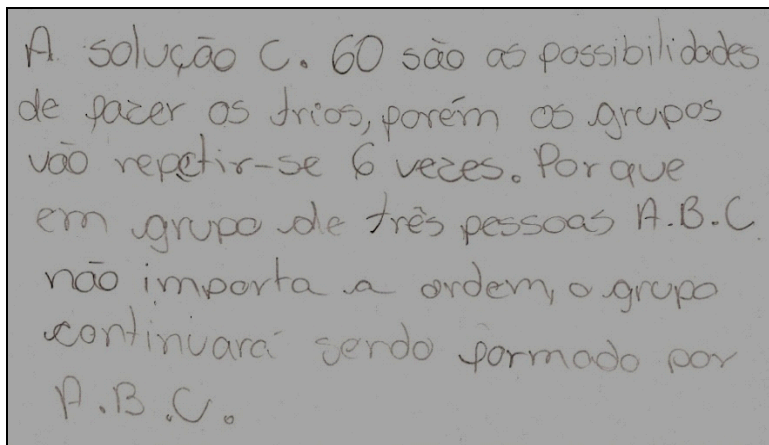 A solução C. 60 são as possibilidades
de fazer os trios, porém os grupos
vão repetir-se 6 vezes. Por que
em grupo de três pessoas A.B.C
não importa a ordem, o grupo
continuará sendo formado por
A.B.C.